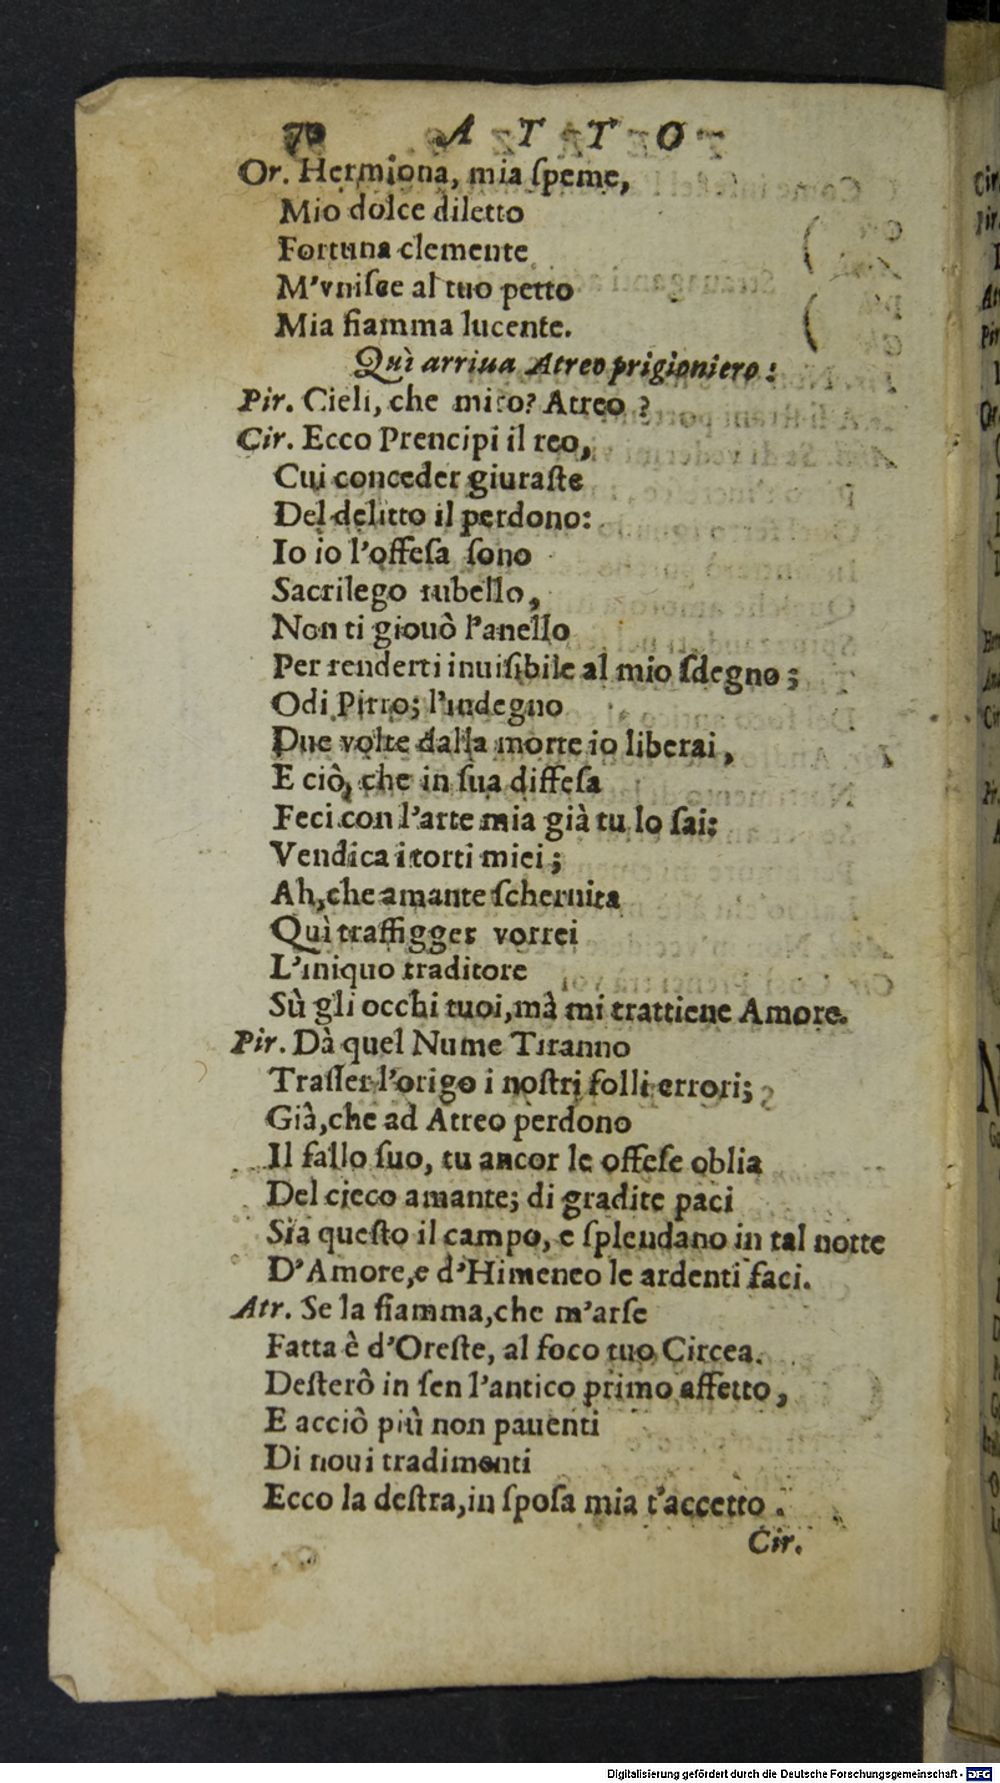 70 ATTO
Or. Hermiona, mia ſpeme,
Mio dolce diletto
Fortuna clemente
M'vniſce al tuo petto
Mia fiamma lucente.
Quì arriua Atreo prigioniero:
Pir. Cieli, che miro? Atreo?
Cir. Ecco Prencipi il reo,
Cui conceder giuraſte
Del delitto il perdono:
Io io l'offeſa ſono
Sacrilego rubello,
Non ti giouò l'anello
Per renderti inuiſibile al mio ſdegno;
Odi Pirro; l'indegno
Due volte dalla morte io liberai,
E ciò, che in ſua diffeſa
Feci con l'arte mia già tu lo ſai:
Vendica i torti miei;
Ah, che amante ſchernita
Quì traffigger vorrei
L'iniquo traditore
Sù gli occhi tuoi, mà mi trattiene Amore.
Pir. Dà quel Nume Tiranno
Traſſer l'origo i noſtri folli errori;
Già, che ad Atreo perdono
Il fallo ſuo, tu ancor le offeſe oblia
Del cieco amante; di gradite paci
Sia queſto il campo, e ſplendano in tal notte
D'Amore, e d'Himeneo le ardenti faci.
Atr. Se la fiamma, che m'arſe
Fatta è d'Oreſte, al foco tuo Circea.
Deſterò in ſen l'antico primo affetto,
E acciò più non pauenti
Di noui tradimenti
Ecco la deſtra, in ſpoſa mia t'accetto.
Cir.
Digitalisierung gefördert durch die Deutsche Forschungsgemeinschaft - DFG